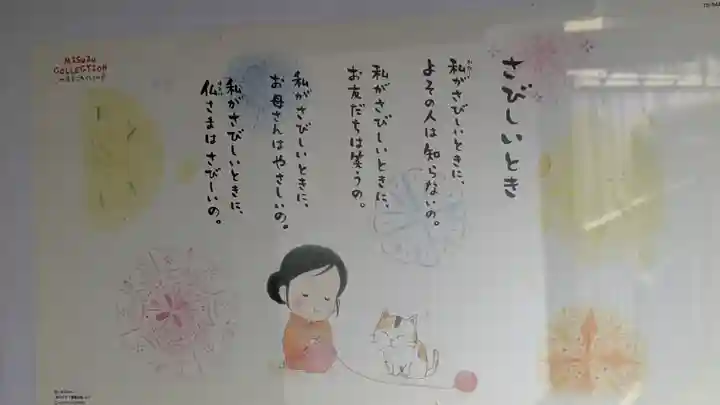 さびしいとき
私がさびしいときに、
よその人は知らないの。
私がさびしいときに、
お友だちは笑うの。
私がさびしいときに、
お母さんはやさしいの。
私がさびしいときに、
仏さまはさびしいの。
MISUZU
COLLECTION